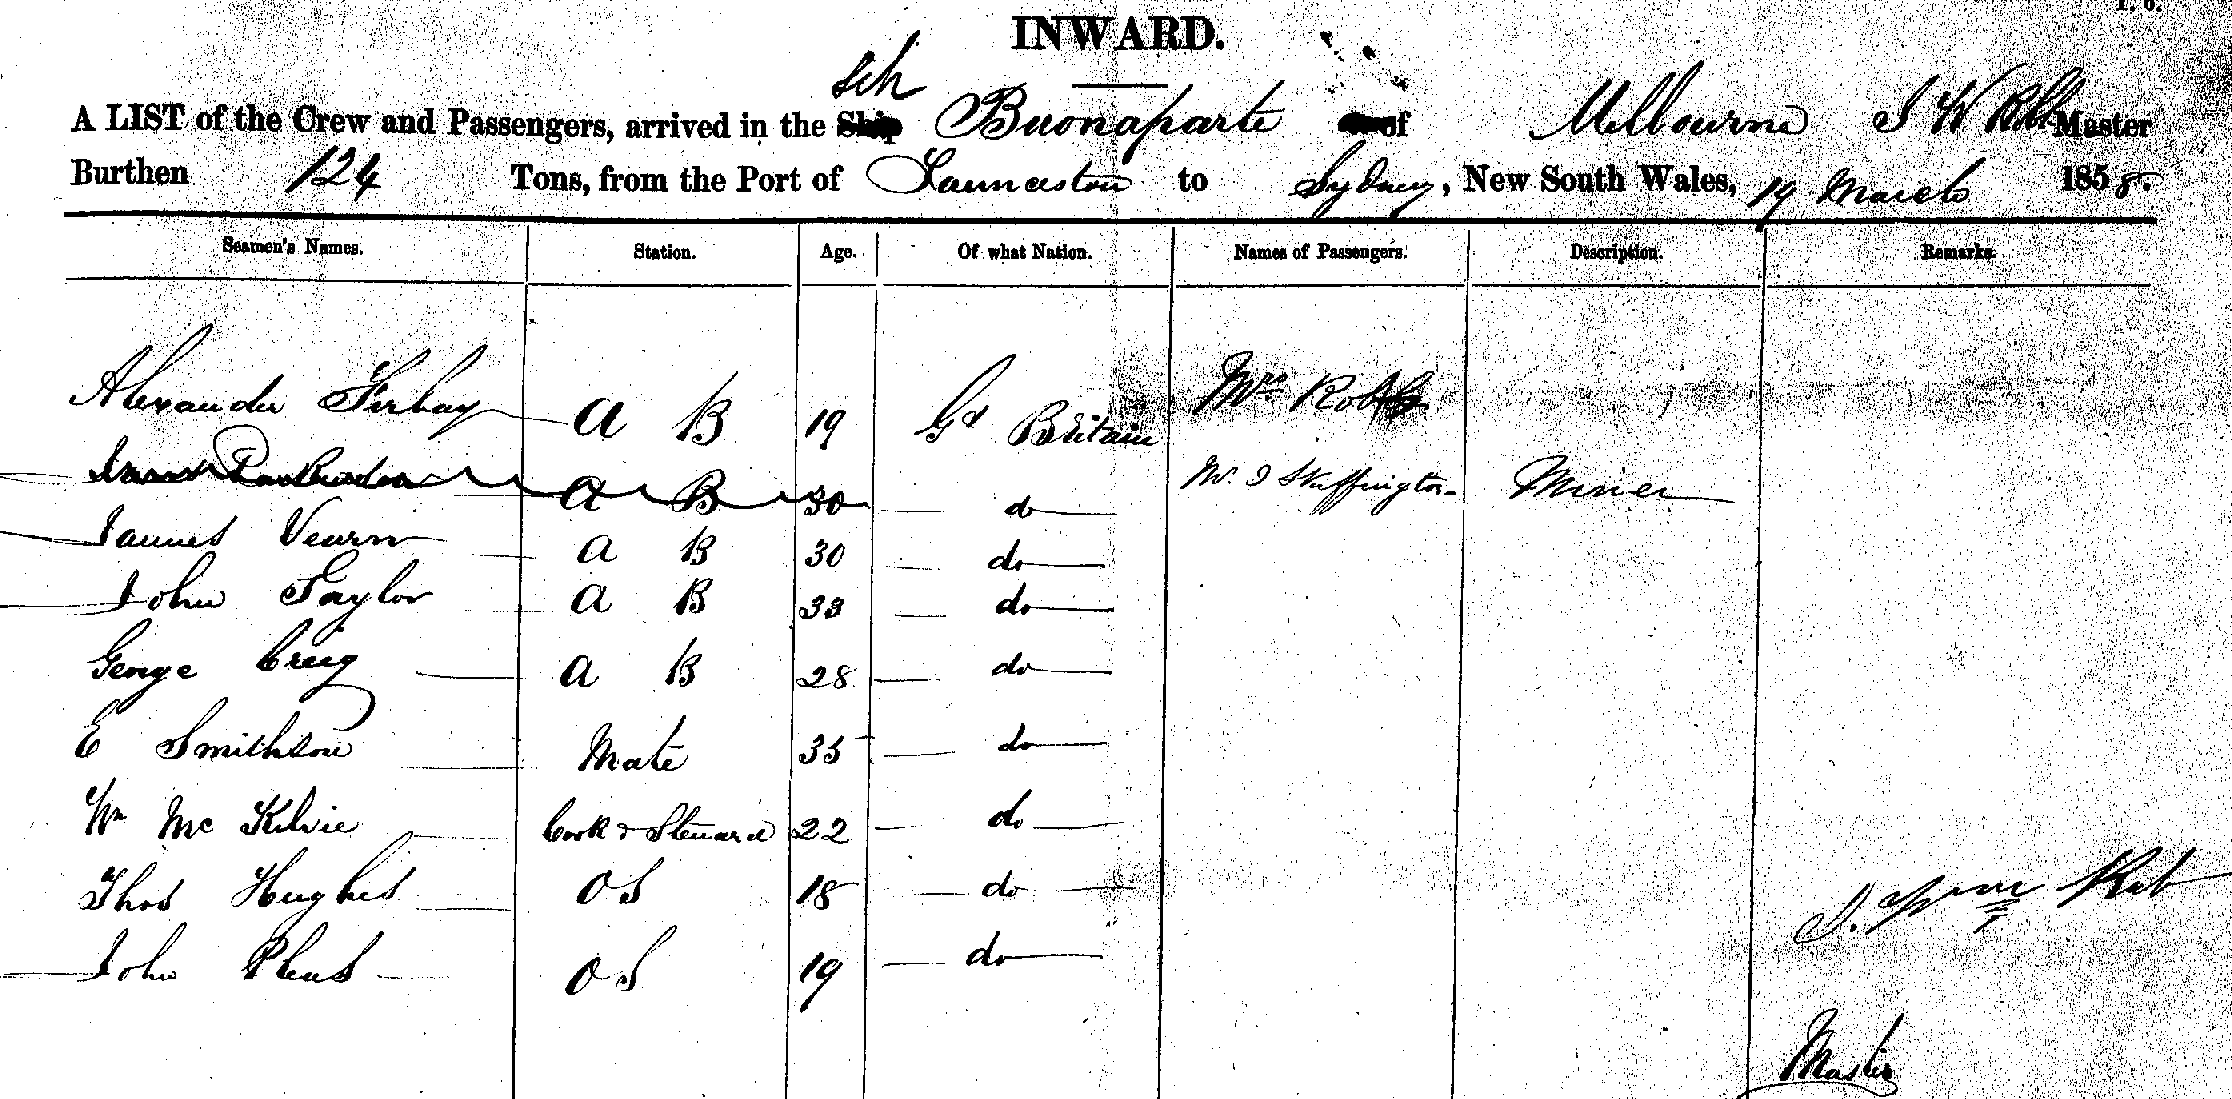 INWARD.
Sch
A LIST of the Crew and Passengers, arrived in the Ship Buonaparte of Melbourne J W Robb Master
Burthen 124 Tons, from the Port of Launceston to Sydney, New South Wales, 19 March 1858.
Seamen's Names. Station. Age. Of what Nation. Names of Passengers. Description. Remarks.
Alexander A B 19 Gt Britain Mrs Robb
A B 30 do Mr. J Skeffington Miner
James A B 30 do
John Taylor A B 33 do
George Creig A B 28 do
E Smithson Mate 35 do
Wm McKilvie Cook & Steward 22 do
Thos Hughes OS 18 do
John OS 19 do
Master